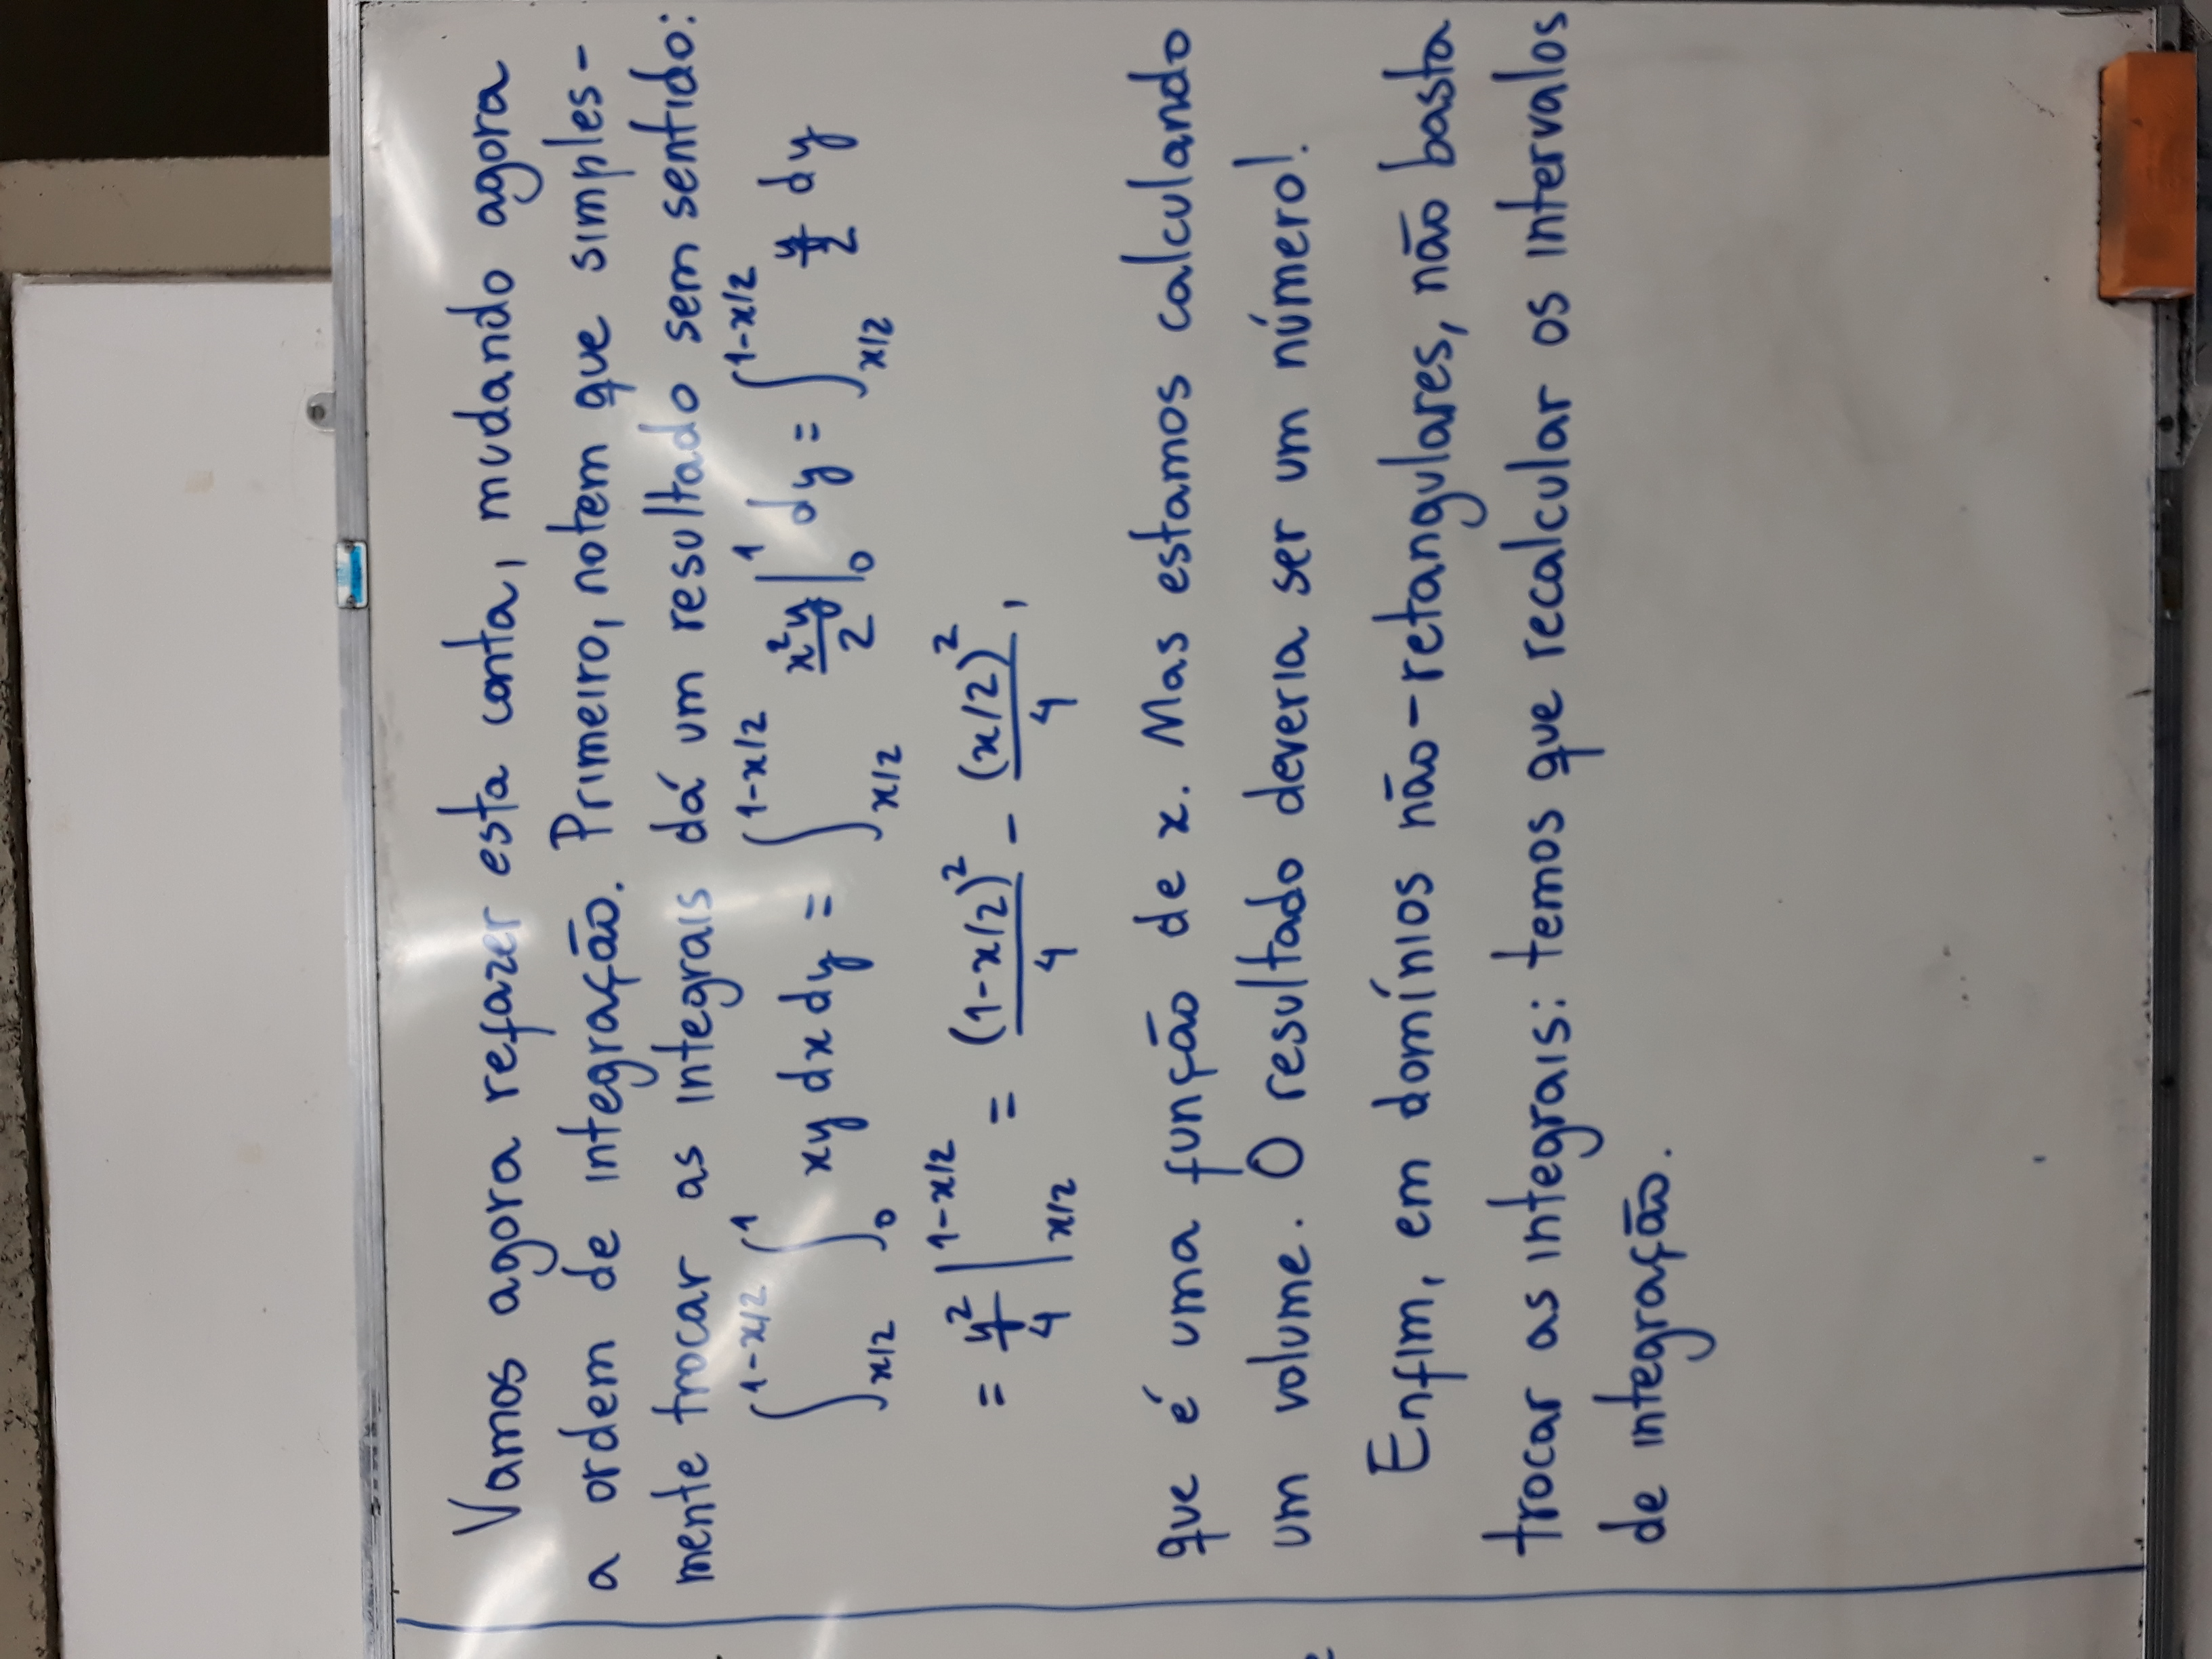 Vamos agora refazer esta conta, mudando agora
a ordem de integração. Primeiro, notem que simples-
mente trocar as integrais dá um resultado sem sentido:
∫_{x/2}^{1-x/2} ∫_0^1 xy dx dy = ∫_{x/2}^{1-x/2} x²y/2 |_0^1 dy = ∫_{x/2}^{1-x/2} y/2 dy
= y²/4 |_{x/2}^{1-x/2} = (1-x/2)²/4 - (x/2)²/4 ,
que é uma função de x. Mas estamos calculando
um volume. O resultado deveria ser um número!
Enfim, em domínios não-retangulares, não basta
trocar as integrais: temos que recalcular os intervalos
de integração.